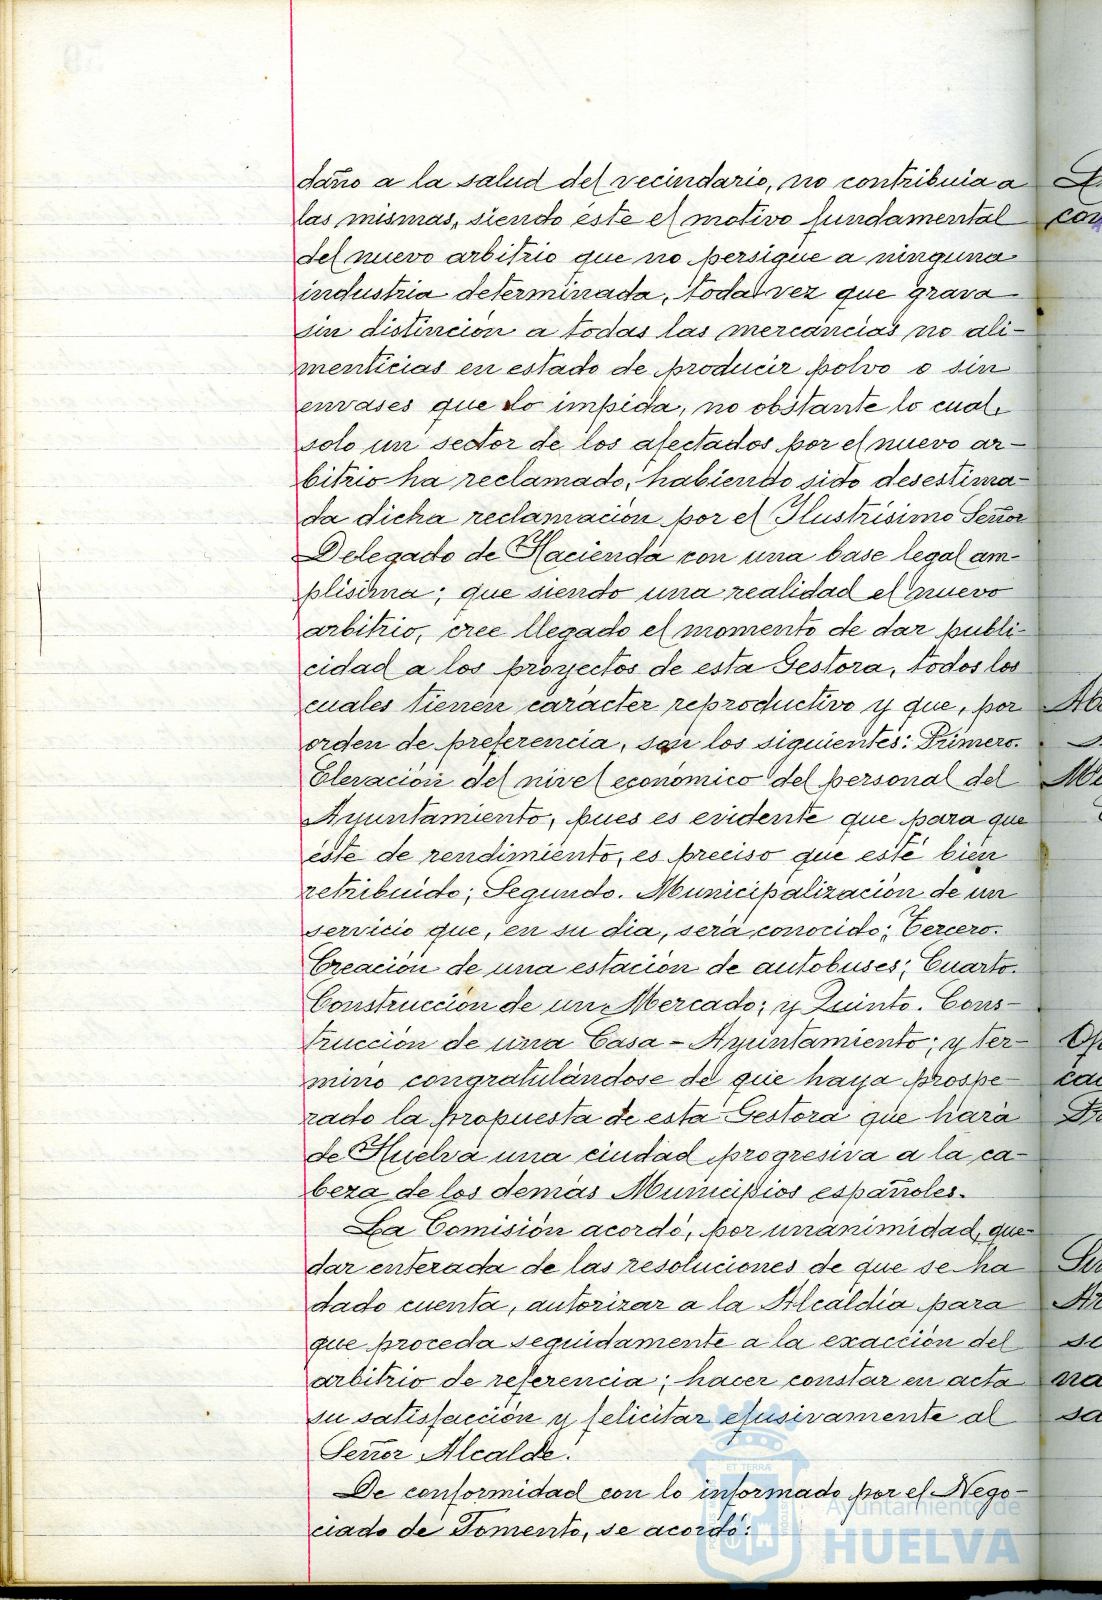 daño a la salud del vecindario, no contribuia a
las mismas, siendo éste el motivo fundamental
del nuevo arbitrio que no persigue a ninguna
industria determinada, toda vez que grava
sin distinción a todas las mercancias no ali-
menticias en estado de producir polvo o sin
envases que lo impida, no obstante lo cual,
solo un sector de los afectados por el nuevo ar-
bitrio ha reclamado, habiendo sido desestima-
da dicha reclamación por el Ilustrísimo Señor
Delegado de Hacienda con una base legal am-
plísima; que siendo una realidad el nuevo
arbitrio, cree llegado el momento de dar publi-
cidad a los proyectos de esta Gestora, todos los
cuales tienen carácter reproductivo y que, por
orden de preferencia, son los siguientes: Primero.
Elevación del nivel económico del personal del
Ayuntamiento, pues es evidente que para que
éste de rendimiento, es preciso que esté bien
retribuido; Segundo. Municipalización de un
servicio que, en su dia, será conocido; Tercero.
Creación de una estación de autobuses; Cuarto.
Construcción de un Mercado; y Quinto. Cons-
trucción de una Casa-Ayuntamiento; y ter-
minó congratulándose de que haya prospe-
rado la propuesta de esta Gestora que hará
de Huelva una ciudad progresiva a la ca-
beza de los demás Municipios españoles.
La Comisión acordó, por unanimidad, que-
dar enterada de las resoluciones de que se ha
dado cuenta, autorizar a la Alcaldía para
que proceda seguidamente a la exacción del
arbitrio de referencia; hacer constar en acta
su satisfacción y felicitar efusivamente al
Señor Alcalde.
De conformidad con lo informado por el Nego-
ciado de Fomento, se acordó:
Ayuntamiento de
HUELVA